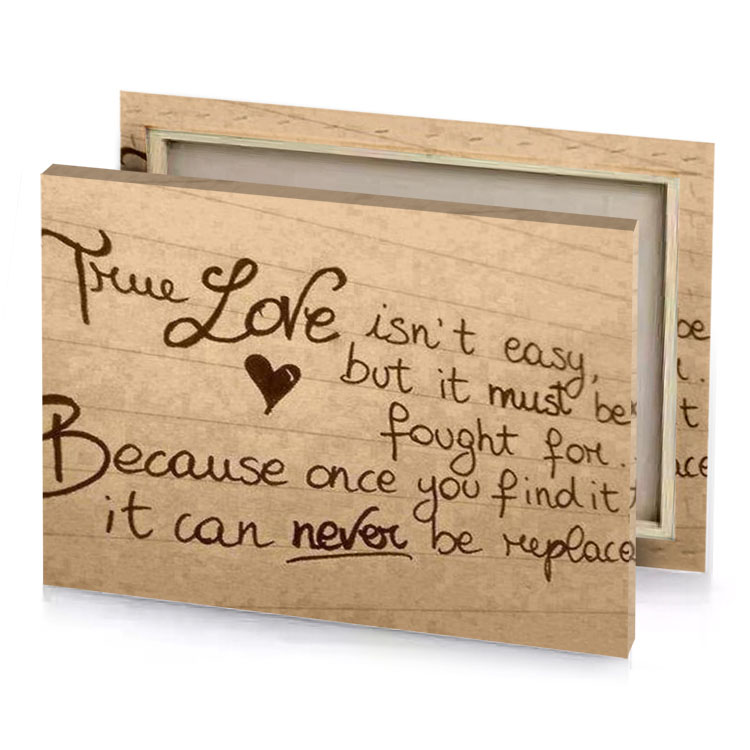 True Love isn't easy,
but it must be
fought for..
Because once you find it,
it can never be replace
be
t
ace